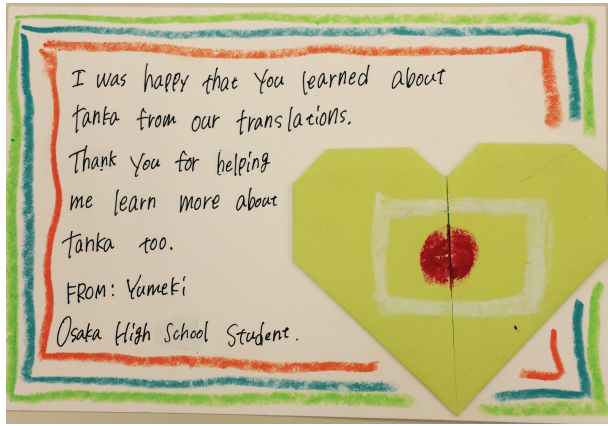 I was happy that You learned about
tanka from our translations.
Thank You for helping
me learn more about
tanka too.
FROM: Yumeki
Osaka High School Student.